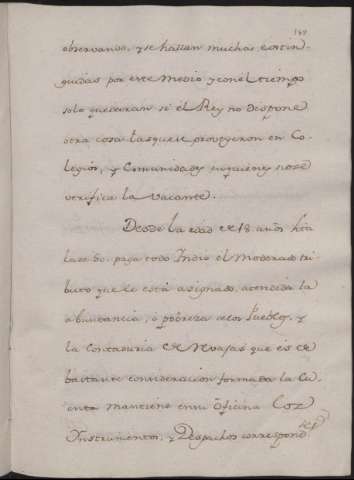 149
observando, y se hallan muchas extin-
guidas por este medio y con el tiempo
solo quedaran si el Rey no dispone
otra cosa las que se proveyeron en Co-
legios, y Comunidades en quienes no se
verifica la vacante.
Desde la edad de 18. años hta
la de 50. paga todo Indio el moderado tri-
buto que le está asignado, atendida la
abundancia, o pobreza de los Pueblos, y
la Contaduria de Retasas que es de
bastante consideracion formada la Cu-
enta mantiene en su Oficina los
Ynstrumentos, y Despachos correspond